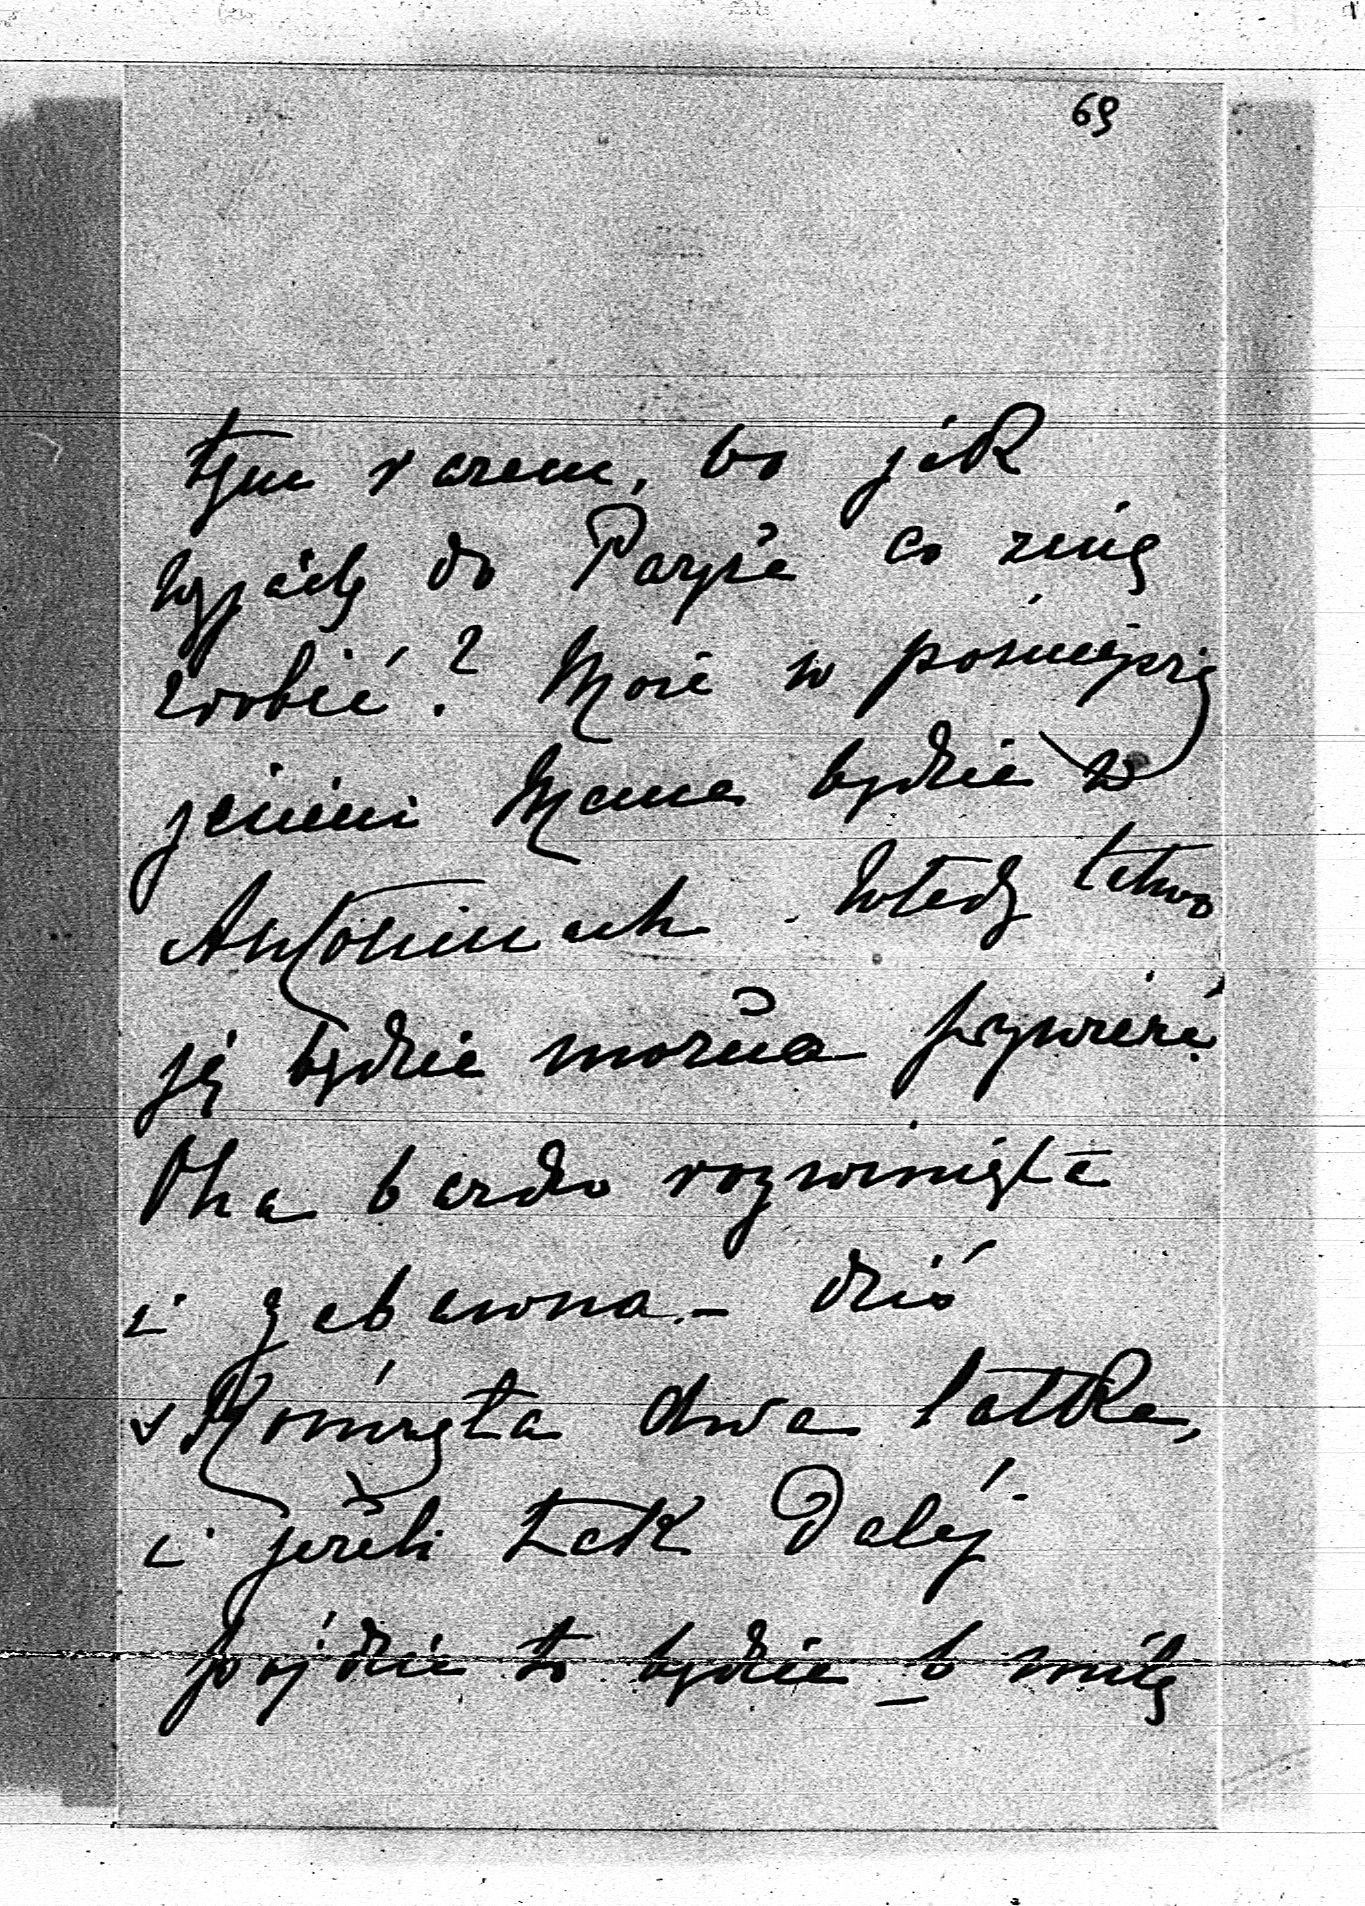 69
tym razem, bo jak
wyjadę do Paryża co z nią
zrobić? Może w późniejszej
jesieni Mama będzie w
Antoninach. Wtedy łatwo
ją będzie można przywieźć.
Ona bardzo rozwinięta
i zabawna. – dziś
skończyła dwa latka,
i jeżeli tak daléj
pójdzie to będzie b miłą